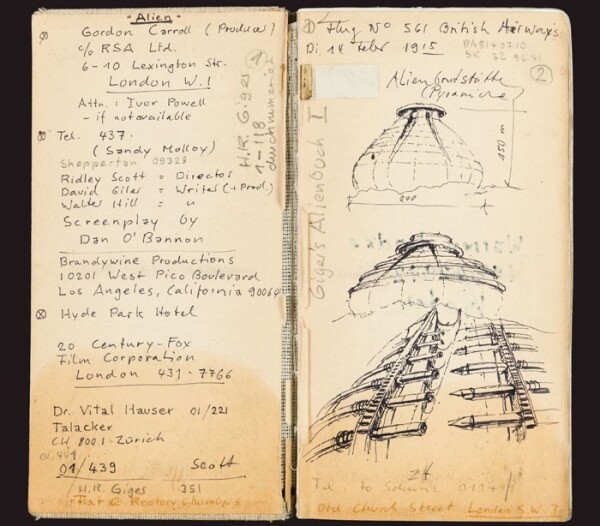 "Alien"
Gordon Carroll (Producer)
c/o RSA Ltd.
6-10 Lexington Str.
London W.1
Attn.: Ivor Powell
- if not available
Tel. 437.
(Sandy Molloy)
Shepperton 09328
Ridley Scott = Director
David Giler = Writer (+ Prod.)
Walter Hill = "
Screenplay by
Dan O'Bannon
Brandywine Productions
10201 West Pico Boulevard
Los Angeles, California 90064
Hyde Park Hotel
20 Century-Fox
Film Corporation
London 431-7766
Dr. Vital Hauser 01/221
Talacker
CH 8001 Zürich
01/439 Scott
H.R. Giges 351
Flat 6 Rectory Chambers
1
H.R. Giges
1-118
durchnumeriert
Flug No 561 British Airways
Di 14 Febr 19
2
Alien
(Pyramide)
150 m
200
Giger's Alienbuch I
24
Tel to
Old Church Street London S.W.3